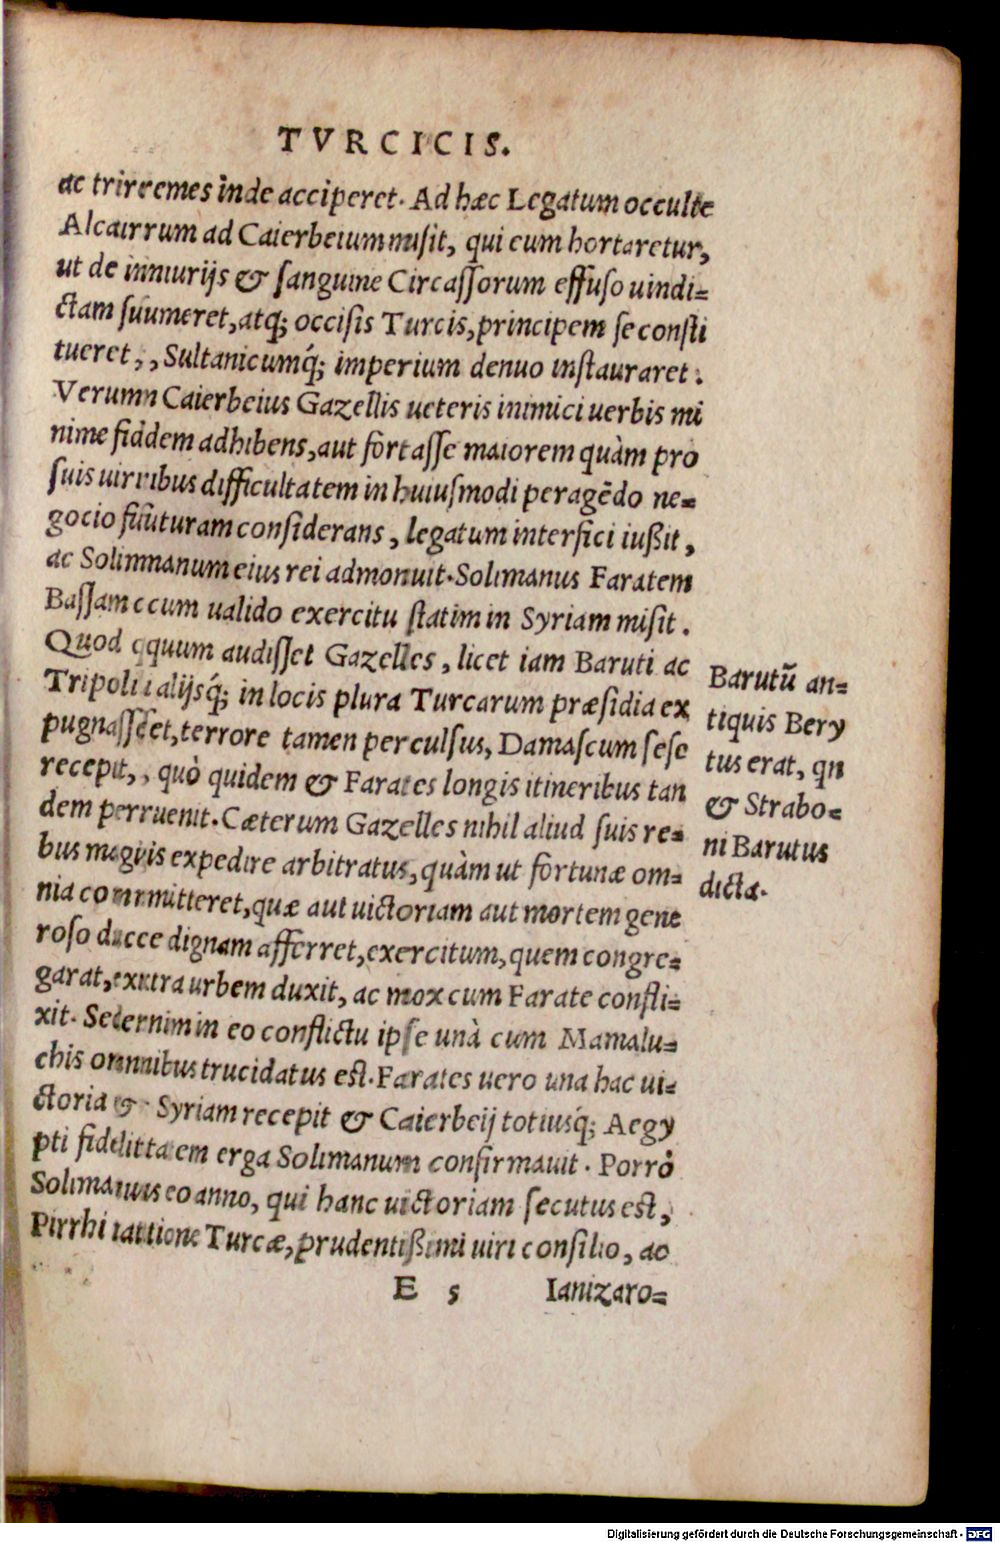 TVRCICIS.
ac trirremes inde acciperet. Ad hæc Legatum occulte
Alcairrum ad Caierbeium misit, qui eum hortaretur,
ut de iniurijs & sanguine Circassorum effuso uindi=
ctam suumeret, atq; occisis Turcis, principem se consti
tueret, , Sultanicumq́; imperium denuo instauraret.
Verumn Caierbeius Gazellis ueteris inimici uerbis mi
nime fiddem adhibens, aut fortasse maiorem quàm pro
suis uirribus difficultatem in huiusmodi peragẽdo ne=
gocio fuuturam considerans, legatum interfici iußit,
ac Solimnanum eius rei admonuit. Solimanus Faratem
Bassam ccum ualido exercitu statim in Syriam misit.
Quod qquum audisset Gazelles, licet iam Baruti ac
Tripoli i alijsq́; in locis plura Turcarum præsidia ex
pugnasseet, terrore tamen perculsus, Damascum sese
recepit, , quò quidem & Farates longis itineribus tan
dem perruenit. Cæterum Gazelles nihil aliud suis re=
bus magis expedire arbitratus, quàm ut fortunæ om=
nia commmitteret, quæ aut uictoriam aut mortem gene
roso ducce dignam afferret, exercitum, quem congre=
garat, exxtra urbem duxit, ac mox cum Farate confli=
xit. Sed eenim in eo conflictu ipse unà cum Mamalu=
chis omnnibus trucidatus est. Farates uero una hac ui=
ctoria & Syriam recepit & Caierbeij totiusq́; Aegy
pti fidelittatem erga Solimanum confirmauit. Porrò
Solimanuus eo anno, qui hanc uictoriam secutus est,
Pirrhi nattione Turcæ, prudentißimi uiri consilio, ac
E 5 Ianizaro=
Barutũ an=
tiquis Bery
tus erat, qn
& Strabo=
ni Barutus
dicta.
Digitalisierung gefördert durch die Deutsche Forschungsgemeinschaft - DFG